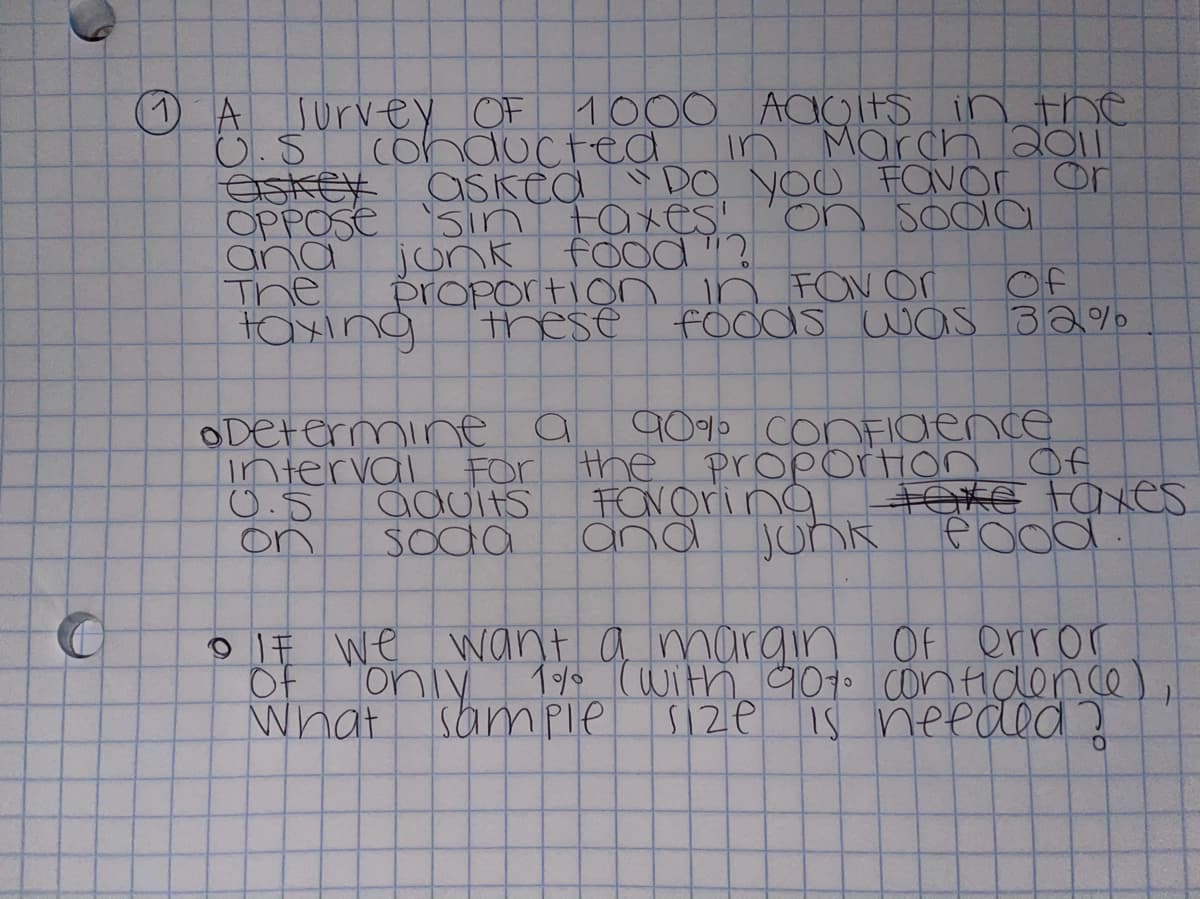 ① A survey OF 1000 Adults in the
U.S conducted in March 2011
askey asked "Do you Favor or
oppose 'sin taxes' on soda
and junk food"?
The proportion in Favor of
taxing these foods was 32%.
• Determine a 90% confidence
interval For the proportion of
U.S adults Favoring take taxes
on soda and junk food.
• IF we want a margin of error
of only 1% (with 90% confidence),
What sample size is needed?